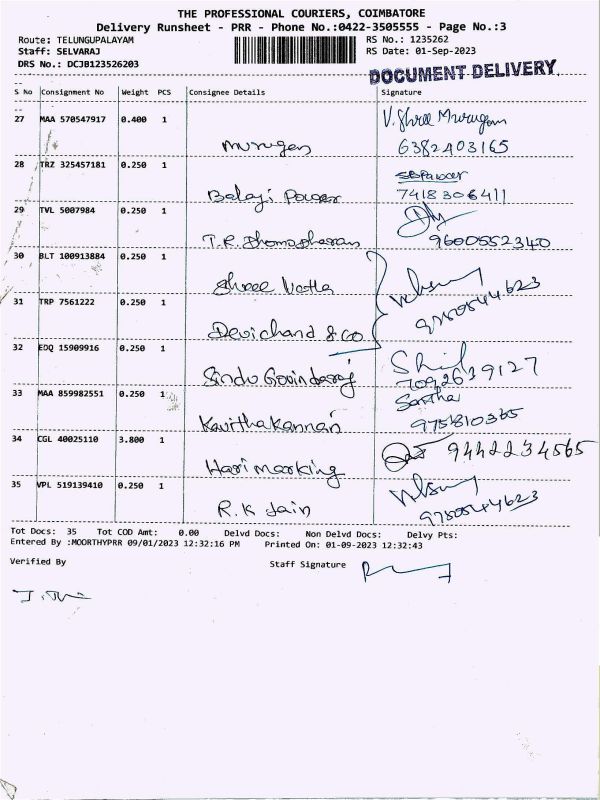 THE PROFESSIONAL COURIERS, COIMBATORE
Delivery Runsheet - PRR - Phone No.:0422-3505555 - Page No.:3
Route: TELUNGUPALAYAM RS No.: 1235262
Staff: SELVARAJ RS Date: 01-Sep-2023
DRS No.: DCJB123526203
DOCUMENT DELIVERY
S No Consignment No Weight PCS Consignee Details Signature
27 MAA 570547917 0.400 1 V. Shree Murugan
Murugan 6382403165
28 TRZ 325457181 0.250 1
Balaji Pawar 7418306411
29 TVL 5007984 0.250 1
T.R. 9600552340
30 BLT 100913884 0.250 1
Shree
31 TRP 7561222 0.250 1 9750544623
Devichand & Co
32 EDQ 15909916 0.250 1
Sindu Govindaraj 7092639127
33 MAA 859982551 0.250 1
Kavitha Kannan 9751810365
34 CGL 40025110 3.800 1 9442234565
Hari marking
35 VPL 519139410 0.250 1
R.K Jain 9750544623
Tot Docs: 35 Tot COD Amt: 0.00 Delvd Docs: Non Delvd Docs: Delvy Pts:
Entered By :MOORTHYPRR 09/01/2023 12:32:16 PM Printed On: 01-09-2023 12:32:43
Verified By Staff Signature